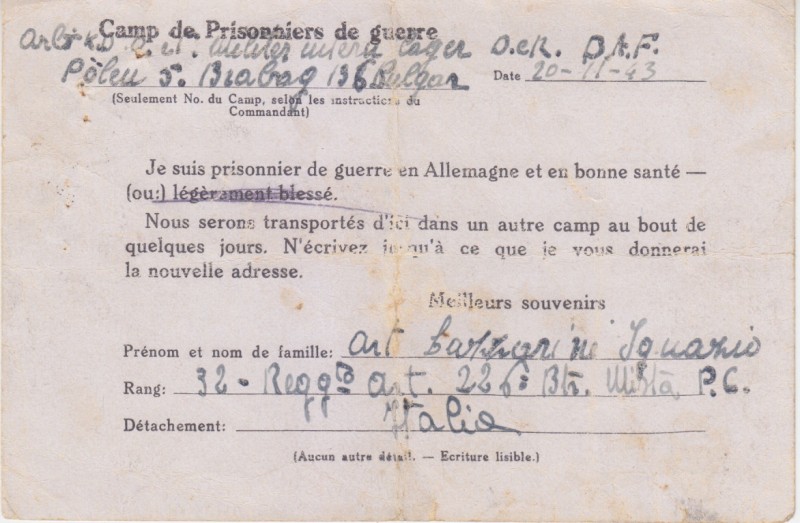 Camp de Prisonniers de guerre
lager D.A.F.
Pölen 5. Brabag 136 Bulgar Date 20-11-43
(Seulement No. du Camp, selon les instructions du
Commandant)
Je suis prisonnier de guerre en Allemagne et en bonne santé —
(ou:) légèrament blessé.
Nous serons transportés d'ici dans un autre camp au bout de
quelques jours. N'écrivez jusqu'à ce que je vous donnerai
la nouvelle adresse.
Meilleurs souvenirs
Prénom et nom de famille: Art Lazzarini Ignazio
Rang: 32- Regg.to Art. 226ª Btr. Mista P.C.
Détachement: Italia
(Aucun autre détail. — Ecriture lisible.)